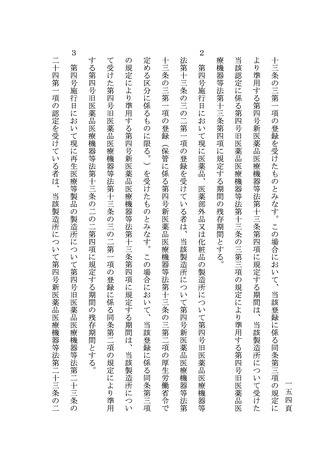 一五四頁
十三条の三第一項の登録を受けたものとみなす。この場合において、当該登録に係る同条第三項の規定に
より準用する第四号新医薬品医療機器等法第十三条第四項に規定する期間は、当該製造所について受けた
当該認定に係る第四号旧医薬品医療機器等法第十三条の三第三項の規定により準用する第四号旧医薬品医
療機器等法第十三条第四項に規定する期間の残存期間とする。
2 第四号施行日において現に医薬品、医薬部外品又は化粧品の製造所について第四号旧医薬品医療機器等
法第十三条の三の二第一項の登録を受けている者は、当該製造所について第四号新医薬品医療機器等法第
十三条の三第一項の登録(保管に係る第四号新医薬品医療機器等法第十三条の三第二項の厚生労働省令で
定める区分に係るものに限る。)を受けたものとみなす。この場合において、当該登録に係る同条第三項
の規定により準用する第四号新医薬品医療機器等法第十三条第四項に規定する期間は、当該製造所につい
て受けた第四号旧医薬品医療機器等法第十三条の三の二第一項の登録に係る同条第二項の規定により準用
する第四号旧医薬品医療機器等法第十三条の二の二第四項に規定する期間の残存期間とする。
3 第四号施行日において現に再生医療等製品の製造所について第四号旧医薬品医療機器等法第二十三条の
二十四第一項の認定を受けている者は、当該製造所について第四号新医薬品医療機器等法第二十三条の二